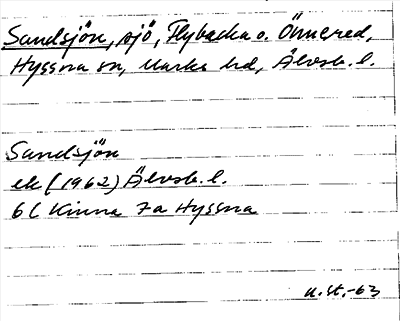 Sandsjön, sjö, Flybacka o. Önnered,
Hyssna sn, Marks hd, Älvsb. l.
Sandsjön
ek (1962) Älvsb. l.
6C Kinna 7a Hyssna
-63